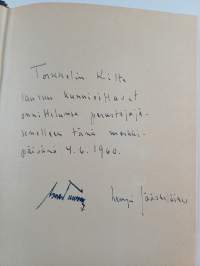 Torkkelin Kilta
lausuu kunnioittavat
onnittelunsa perustajajä-
senelleen tänä merkki-
päivänä 4.6.1960.
Jääskeläinen